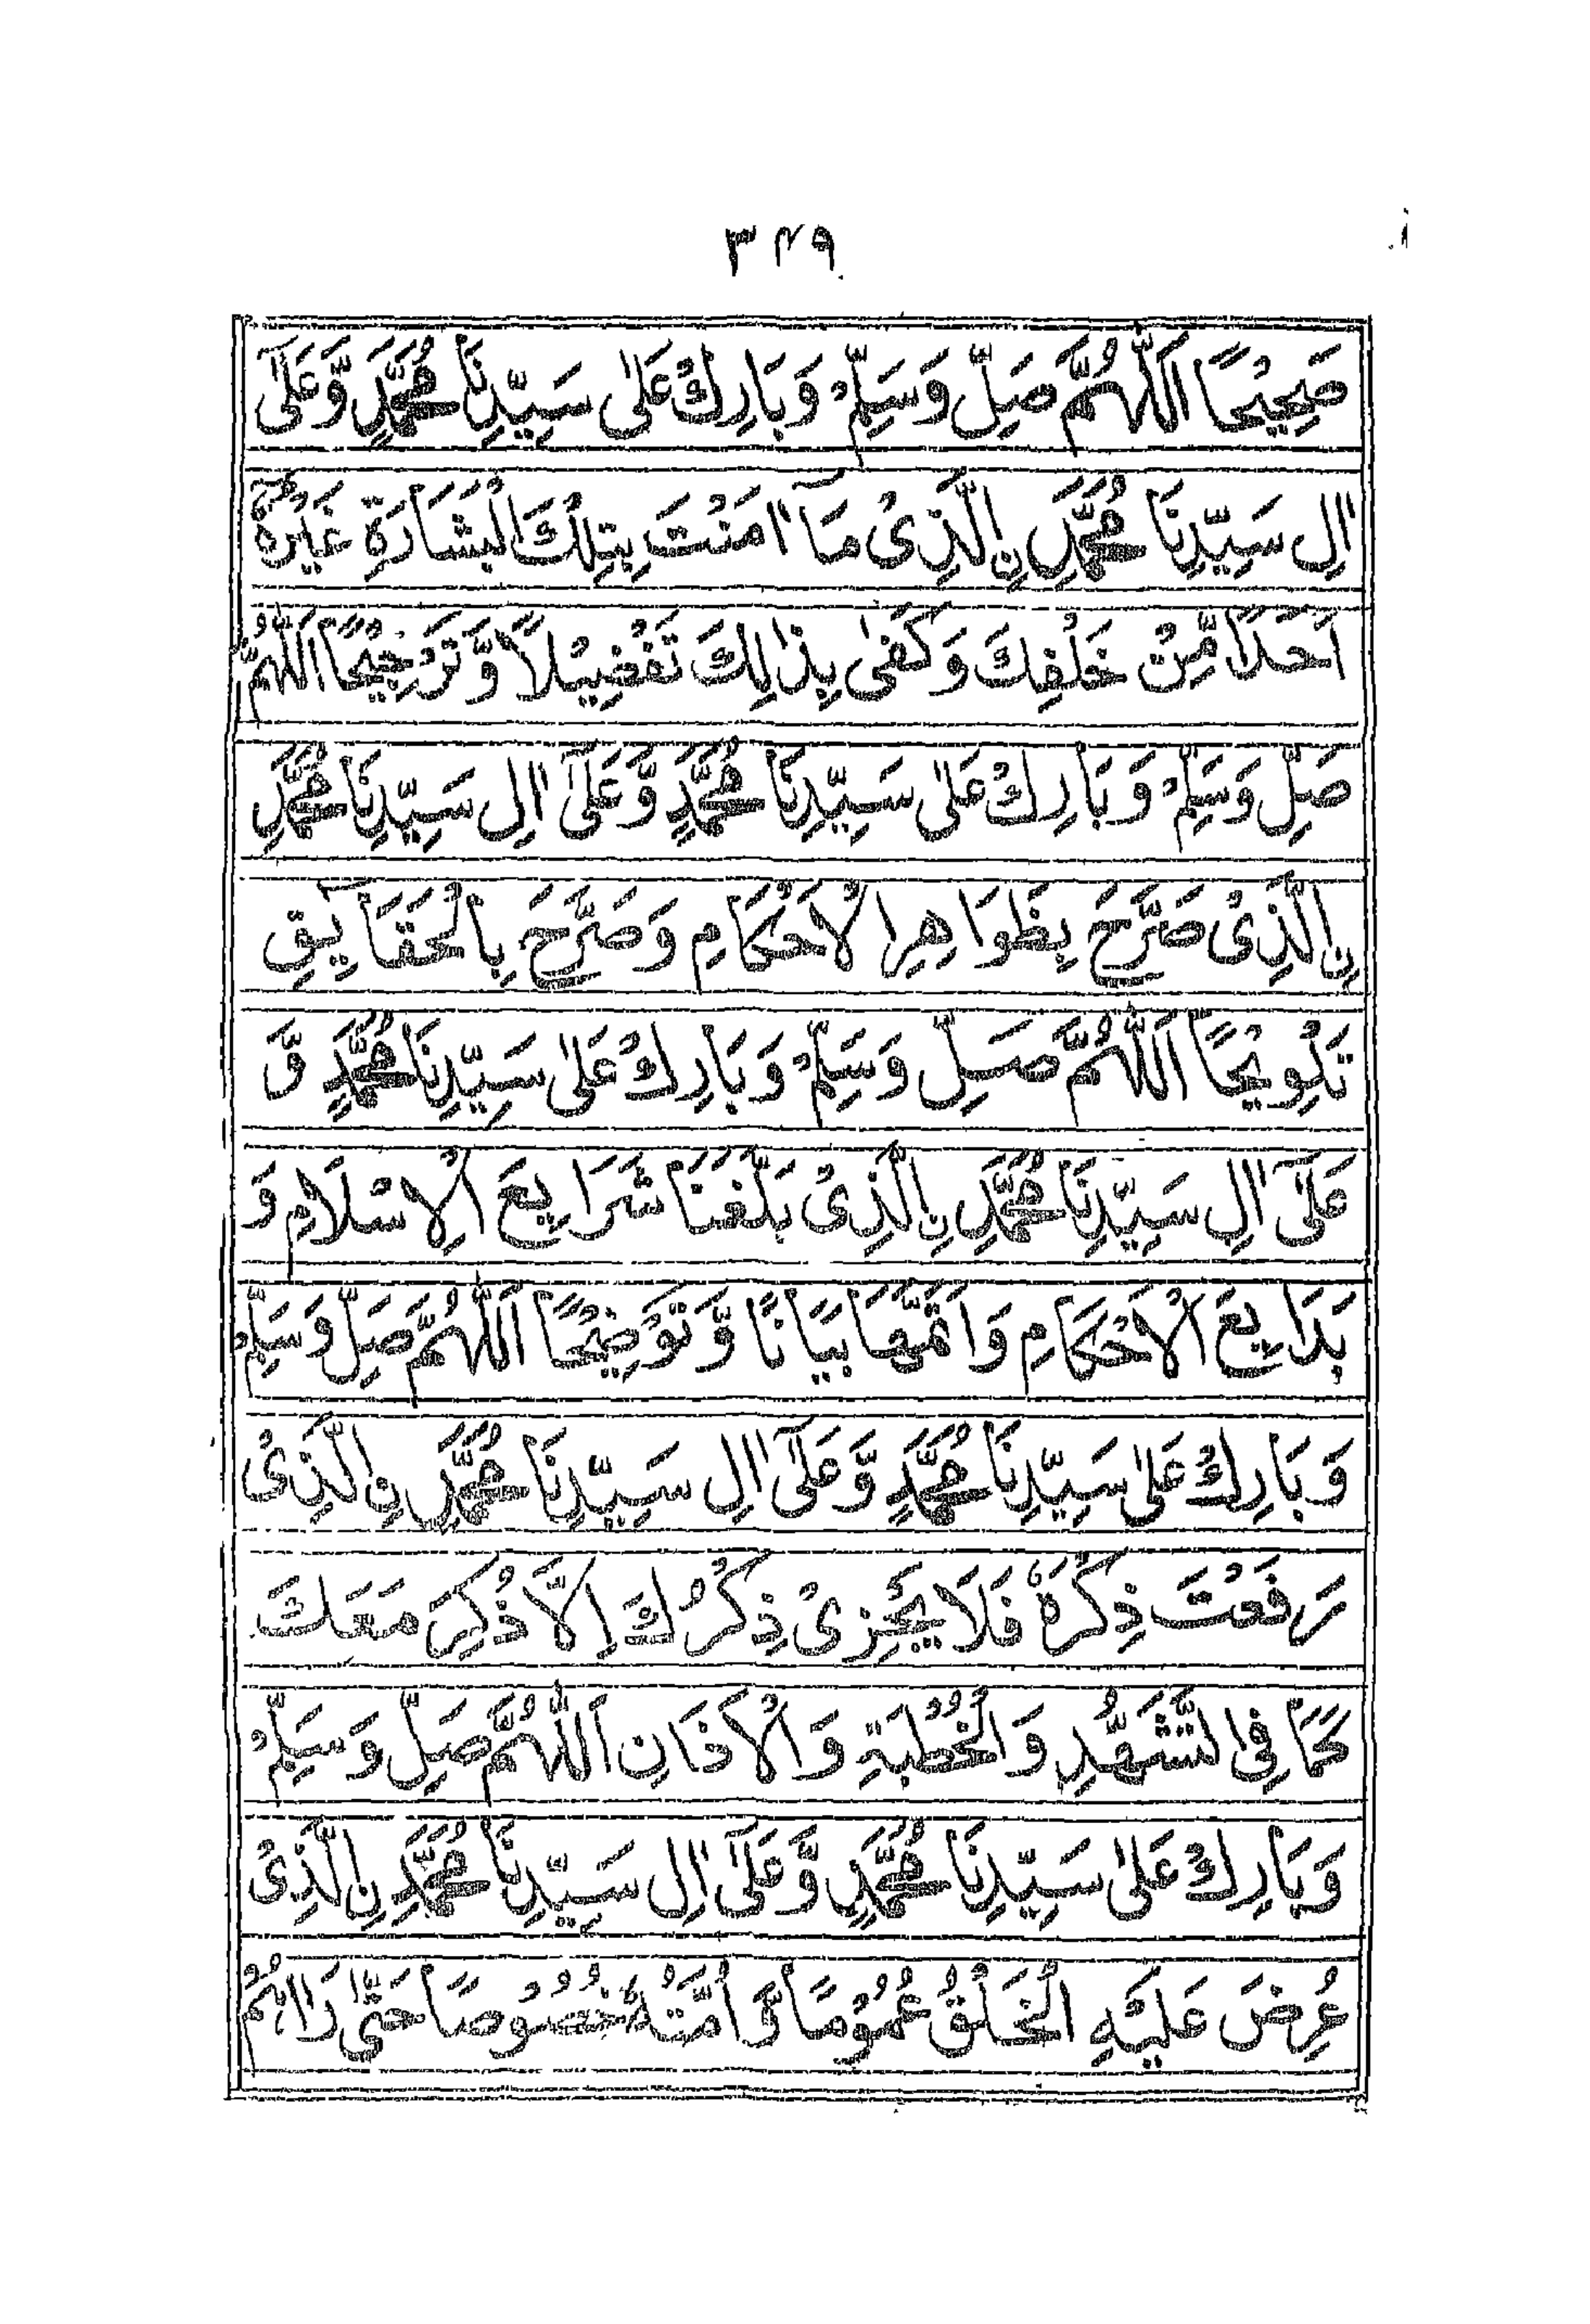 ۳۲۹
صَحِيْحًا اَللّٰهُمَّ صَلِّ وَسَلِّمْ وَبَارِكْ عَلٰى سَيِّدِنَا مُحَمَّدٍ وَّعَلٰٓى
اٰلِ سَيِّدِنَا مُحَمَّدِ نِ الَّذِىْ مَآ اٰمَنْتَ بِتِلْكَ الْبُشَارَةِ غَيْرَهٗ
اَحَدًا مِّنْ خَلْقِكَ وَكَفٰى بِذٰلِكَ تَفْضِيْلًا وَّتَرْجِيْحًا اَللّٰهُمَّ
صَلِّ وَسَلِّمْ وَبَارِكْ عَلٰى سَيِّدِنَا مُحَمَّدٍ وَّعَلٰٓى اٰلِ سَيِّدِنَا مُحَمَّدِ
نِ الَّذِىْ صَرَّحَ بِظَوَاهِرِ الْاَحْكَامِ وَصَرَّحَ بِالْحَقَآيِقِ
تَلْوِيْحًا اَللّٰهُمَّ صَلِّ وَسَلِّمْ وَبَارِكْ عَلٰى سَيِّدِنَا مُحَمَّدٍ وَّ
عَلٰٓى اٰلِ سَيِّدِنَا مُحَمَّدِ نِ الَّذِىْ بَلَّغَنَا شَرَايِعَ الْاِسْلَامِ وَ
بَدَايِعَ الْاَحْكَامِ وَاَتَمَّهَا بَيَانًا وَّتَوْضِيْحًا اَللّٰهُمَّ صَلِّ وَسَلِّمْ
وَبَارِكْ عَلٰى سَيِّدِنَا مُحَمَّدٍ وَّعَلٰٓى اٰلِ سَيِّدِنَا مُحَمَّدِ نِ الَّذِىْ
رَفَعْتَ ذِكْرَهٗ فَلَا يُجْزِىْ ذِكْرُكَ اِلَّا ذُكِرَ مَعَكَ
كَمَا فِى التَّشَهُّدِ وَالْخُطْبَةِ وَالْاَذَانِ اَللّٰهُمَّ صَلِّ وَسَلِّمْ
وَبَارِكْ عَلٰى سَيِّدِنَا مُحَمَّدٍ وَّعَلٰٓى اٰلِ سَيِّدِنَا مُحَمَّدِ نِ الَّذِىْ
عُرِضَ عَلَيْهِ الْخَلْقُ عُمُوْمًا وَّاُمَّتُهٗ خُصُوْصًا حَتّٰى رَاٰهُمْ